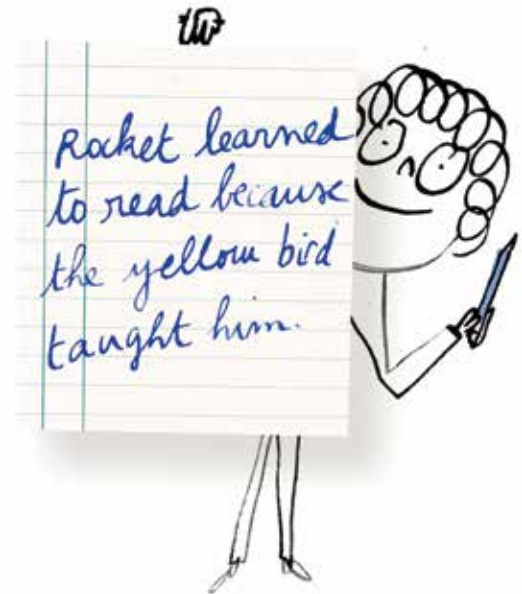 Rocket learned
to read because
the yellow bird
taught him.